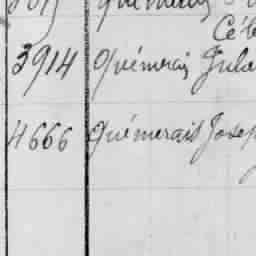 Cél
3914 Quémerais Jule
4666 Quémerais Josep